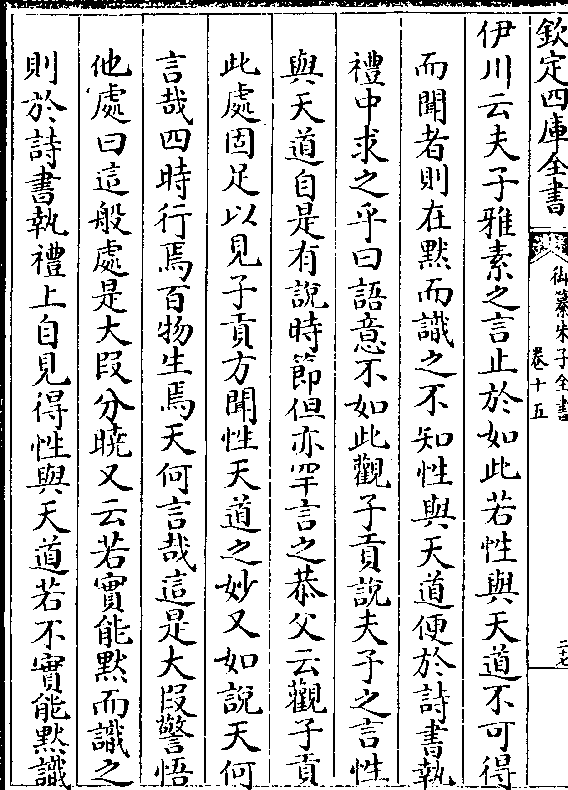 欽定四庫全書
御纂朱子全書
卷十五
二七
伊川云夫子雅素之言止於如此若性與天道不可得
而聞者則在默而識之不知性與天道便於詩書執
禮中求之乎曰語意不如此觀子貢說夫子之言性
與天道自是有說時節但亦罕言之恭父云觀子貢
此處固足以見子貢方聞性天道之妙又如說天何
言哉四時行焉百物生焉天何言哉這是大段警悟
他處曰這般處是大段分曉又云若實能默而識之
則於詩書執禮上自見得性與天道若不實能默識